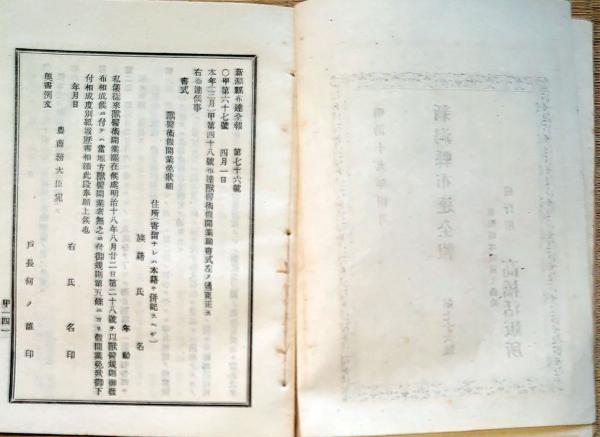 新潟縣布達全報　第七十六號
〇甲第六十七號　四月一日
本年三月甲第四十八號布達獸醫術假開業願書式左ノ通更正ス
右布達候事
書式
獸醫術假開業免狀願
住所(寄留ナレハ本籍ヲ併記スヘシ)
族籍氏名
年齡
私儀從來獸醫術開業罷在候處明治十八年八月廿二日第二十八號ヲ以獸醫規則御發
布相成候ニ付テハ當地方獸醫開業者無之ニ付御規則第五條ニヨリ假開業免狀御下
付相成度別紙履歷書相添此段奉願上候也
年月日
右氏名印
農商務大臣宛
戸長何ノ誰印
奧書例文
甲一四一
新潟縣布達全報
發行所
高橋活版所